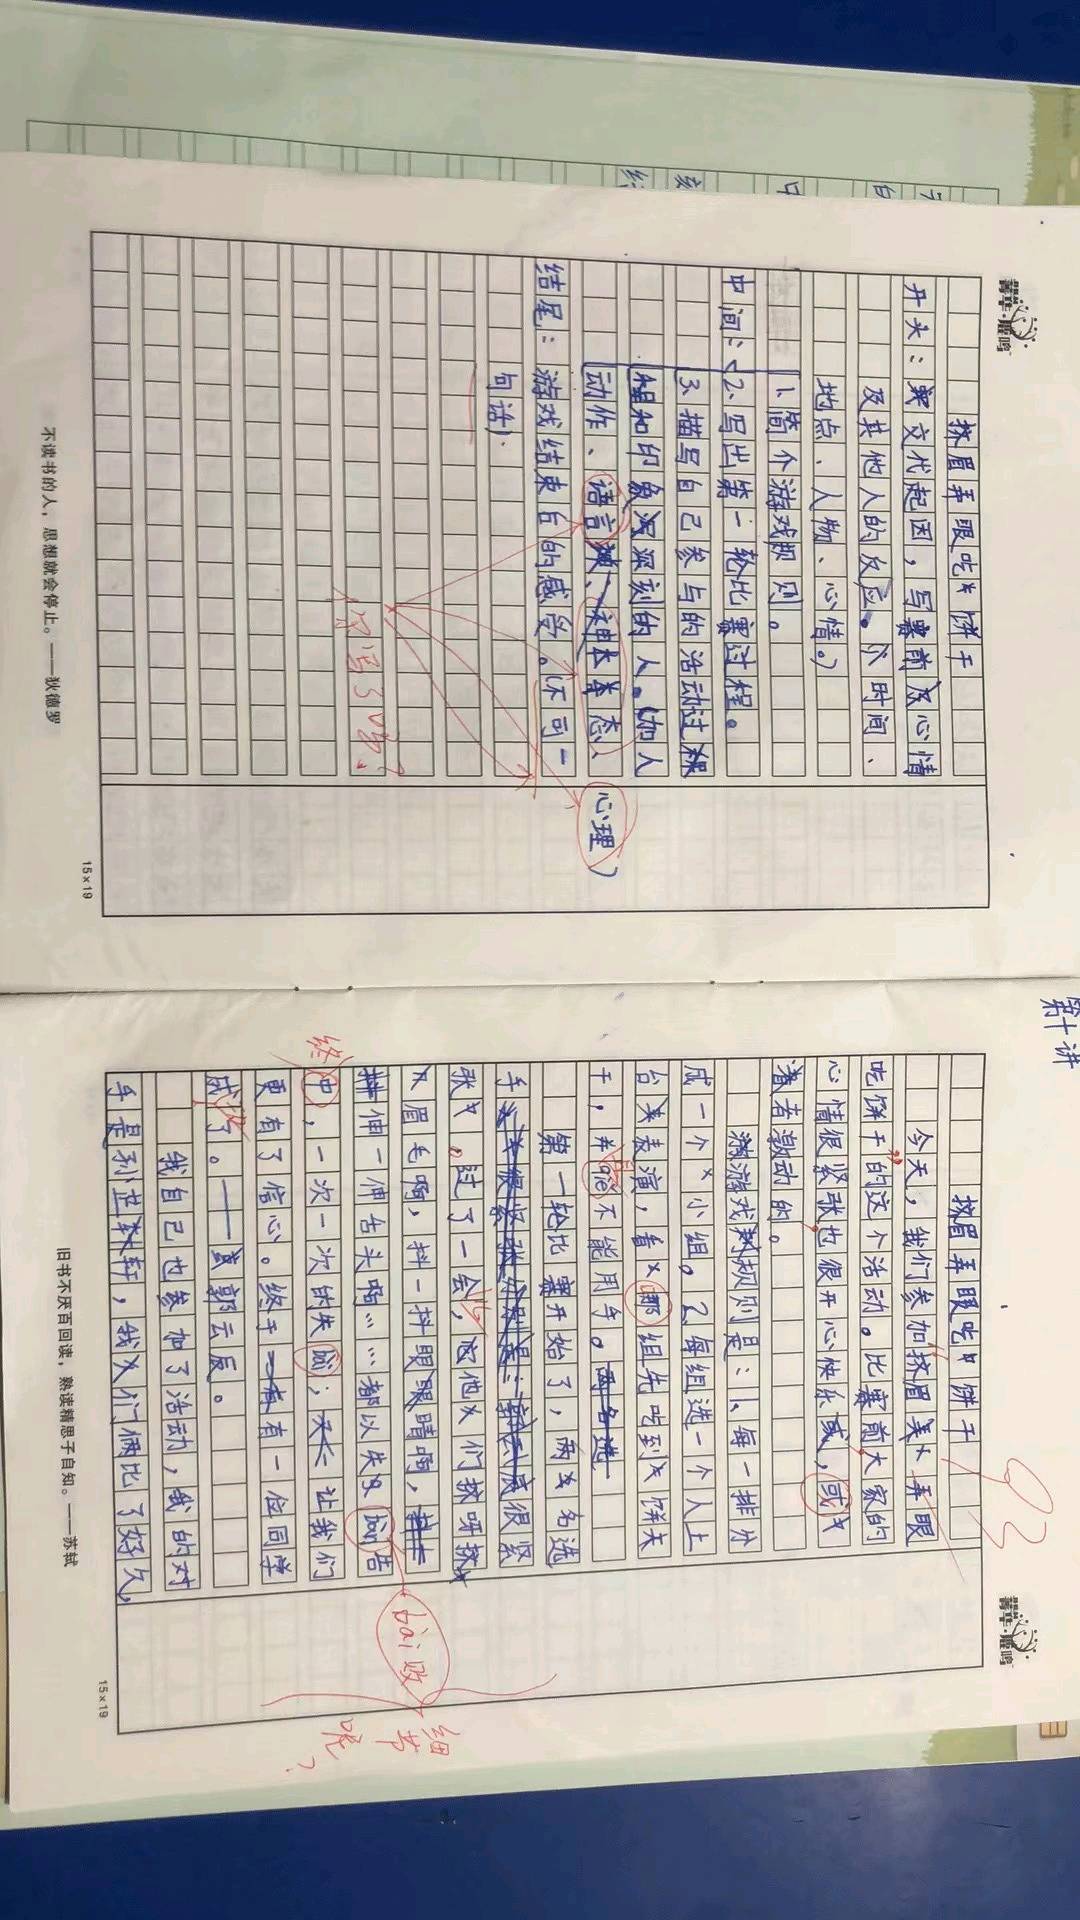 挤眉弄眼吃饼干
开头：交代起因，写赛前及心情
及其他人的反应。（时间、
地点、人物、心情。）
1、简介游戏规则。
中间：2、写出第一轮比赛过程。
3、描写自己参与的活动过程
和印象深刻的人。（加人
动作、语言、神态、心理）
结尾：游戏结束后的感受。（不可一
句话）
你写了吗？
不读书的人，思想就会停止。——狄德罗
15×19
菁华·雅鸣
第十讲
挤眉弄眼吃饼干
93
今天，我们参加挤眉弄眼
吃饼干”的这个活动。比赛前大家的
心情很紧张也很开心快乐，或
者激动的。
游戏规则是：1、每一排分
成一个小组。2每组选一个人上
台表演，看哪组先吃到饼夫
干，不能用手。
第一轮比赛开始了，两名选
手很紧
张。过了一会，他们挤呀挤
眉毛啊，抖一抖眼睛啊，
伸一伸舌头啊……都以失告
终
中，一次一次的失；让我们
更有了信心。终于有一位同学
成了。——郭云辰。
我自己也参加了活动，我的对
手是孙芷轩，我们俩比了好久，
bài败
细节呢？
旧书不厌百回读，熟读精思子自知。——苏轼
15×19
菁华·雅鸣